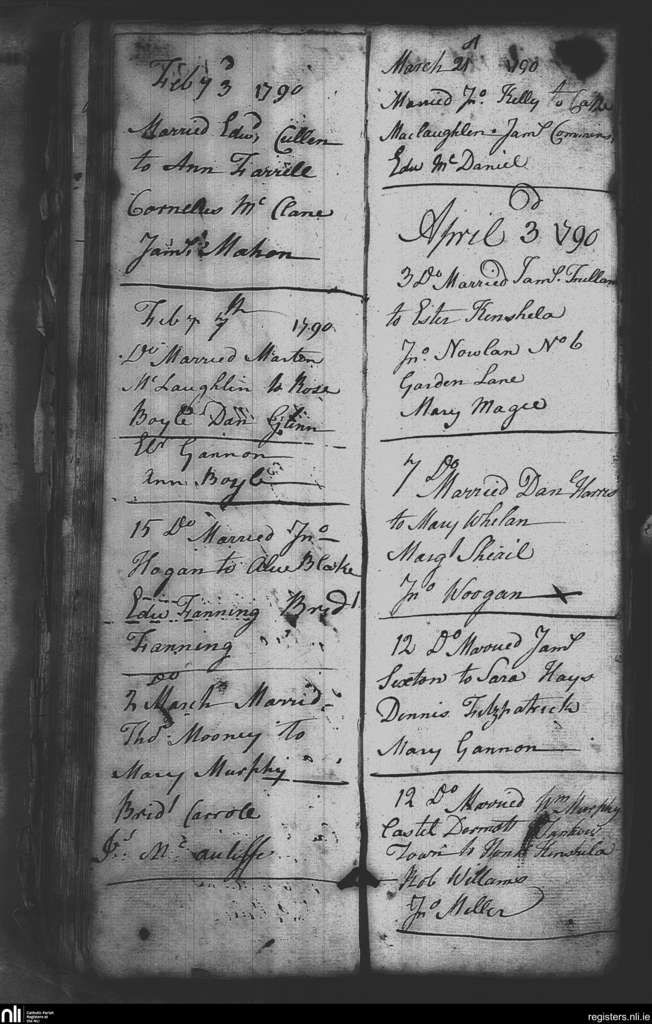 Feby 3d 1790
Married Edwd Cullen
to Ann Farrell
Cornelius Mc Clane
Jams Mahon
Feby 7th 1790
Do Married Marten
McLaughlin to Rose
Boyle Dan Glinn
Gannon
Ann Boyle
15 Do Married Jno
Hogan to Blake
Edw Fanning Bridt
Fanning
Do
2 March Married
Thos Mooney to
Mary Murphy
Bridt Carrole
Mc auliffe
March 21 1790
Married Jno Kelly to
Maclaughlen Jams
Edw McDaniel
April 3d 1790
3 Do Married Jams
to Ester Kenshela
Jno Nowlan No 6
Garden Lane
Mary Magee
7 Do Married Danl Harris
to Mary Whelan
Margt
Jno Woogan
12 Do Married Jams
Sexton to Sara Hays
Dennis Fitzpatrick
Mary Gannon
12 Do Married Wm Murphy
Castel Dermott
Town to Kenshela
Rob Willams
Jno Miller
nli Catholic Parish
Registers at
the NLI
registers.nli.ie